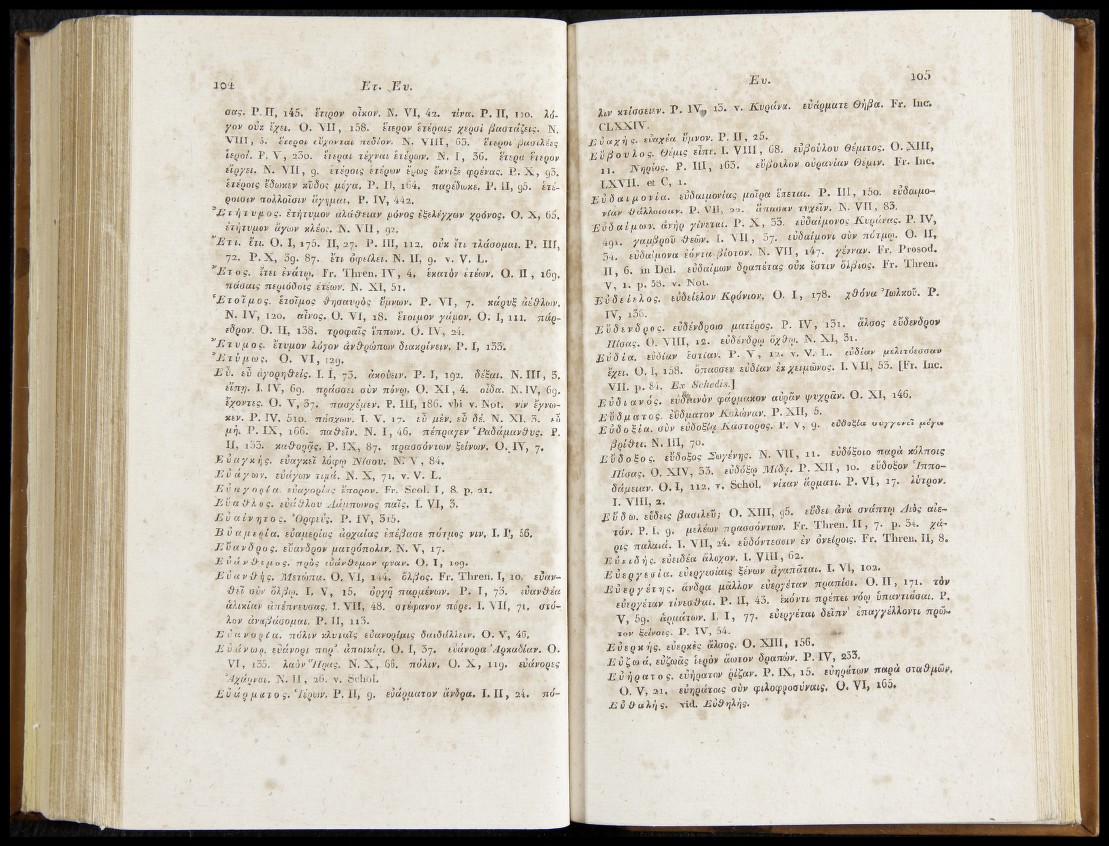 104 Ετ. Ευ.
σας. P. II, 145. ἕτερον οἶκον. N. VI, 42. τίνα. P. II, 110. λό-
γον οὐκ ἔχει. O. VII, 158. ἕτερον ἑτέραις χερσὶ βαστάζεις. N.
VIII, 3. ἕτεροι εὔχονται πεδίον. N. VIII, 63. ἕτεροι βασιλέες
ἱεροί. P. V, 230. ἕτεραι τέχναι ἑτέρων. N. I, 36. ἕτερα ἕτερον
εἴργει. N. VII, 9. ἑτέροις ἑτέρων ἔρως ἔκνιξε φρένας. P. X, 93.
ἑτέροις ἔδωκεν κῦδος μέγα. P. II, 164. παρέδωκε. P. II, 95. ἑτέ-
ροισιν πολλοῖσιν ἄγημαι. P. IV, 442.
Ἐτήτυμος. ἐτήτυμον ἀλάθειαν μόνος ἐξελέγχων χρόνος. O. X, 65.
ἐτήτυμον ἄγων κλέος. N. VII, 92.
Ἔτι. ἔτι. O. I, 175. II, 27. P. III, 112. οὐκ ἔτι τλάσομαι. P. III,
72. P. X, 39. 87. ἔτι ὀφείλει. N. II, 9. v. V. L.
Ἔτος. ἔτει ἐνάτῳ. Fr. Thren. IV, 4. ἑκατὸν ἐτέων. O. II, 169.
πάσαις περιόδοις ἐτέων. N. XI, 51.
Ἑτοῖμος. ἑτοῖμος θησαυρὸς ὕμνων. P. VI, 7. κάρυξ ἀέθλων.
N. IV, 120. αἶνος. O. VI, 18. ἕτοιμον γάμον. O. I, 111. πάρ-
εδρον. O. II, 138. τροφαῖς ἵππων. O. IV, 24.
Ἔτυμος. ἔτυμον λόγον ἀνθρώπων διακρίνειν. P. I, 133.
Ἐτύμως. O. VI, 129.
Εὖ. εὖ ἀγορηθείς. I. I, 73. ἀκούειν. P. I, 192. δέξαι. N. III, 3.
εἴπῃ. I. IV, 69. πράσσει σὺν πόνῳ. O. XI, 4. οἶδα. N. IV, 69.
ἔχοντες. O. V, 37. πασχέμεν. P. III, 186. vbi v. Not. νιν ἔγνω-
κεν. P. IV, 510. πάσχων. I. V, 17. εὖ μέν. εὖ δέ. N. XI, 3. εὖ
μή. P. IX, 166. παθεῖν. N. I, 46. πέπραγεν Ῥαδάμανθυς. P.
II, 133. καθορᾷς. P. IX, 87. πρασσόντων ξείνων. O. IV, 7.
Εὐαγκής. εὐαγκεῖ λόφῳ Νίσου. N. V, 84.
Εὐάγων. εὐάγων τιμά. N. X, 71. v. V. L.
Εὐαγορία. εὐαγορίας ἐπορον. Fr. Scol. I, 8. p. 21.
Εὔαθλος. εὐάθλου Λάμπωνος παῖς. I. VI, 3.
Εὐαίνητος. Ὀρφεύς. P. IV, 315.
Εὐαμερία. εὐαμερίας ἀρχαίας ἐπέβασε πότμος νιν. I. I, 56.
Εὔανδρος. εὔανδρον ματρόπολιν. N. V, 17.
Εὐάνθεμος. πρὸς εὐάνθεμον φυάν. O. I, 109.
Εὐανθής. Μετώπα. O. VI, 144. ὄλβος. Fr. Thren. I, 10. εὐαν-
θεῖ σὺν ὄλβῳ. I. V, 15. ὀργῇ παρμένων. P. I, 73. εὐανθέα
ἁλικίαν ἀπέπνευσας. I. VII, 48. στέφανον πόρε. I. VII, 71. στό-
λον ἀναβάσομαι. P. II, 113.
Εὐανορία. πόλιν κλυταῖς εὐανορίαις δαιδάλλειν. O. V, 46.
Εὐάνωρ. εὐάνορι παρ' ἀποικίᾳ. O. I, 37. εὐάνορα Ἀρκαδίαν. O.
VI, 135. λαὸν Ἥρας. N. X, 66. πόλιν. O. X, 119. εὐάνορες
Ἀχάρναι. N. II, 26. v. Schol.
Εὐάρματος. Ἱέρων. P. II, 9. εὐάρματον ἄνδρα. I. II, 24. πό-
Ευ. 105
λιν κτίσσειεν. P. IV, 13. v. Κυράνα. εὐάρματε Θήβα. Fr. Inc.
CLXXIV.
Εὐαχής. εὐαχέα ὕμνον. P. II, 25.
Εὔβουλος. Θέμις εἶπε. I. VIII, 68. εὐβούλου Θέμιτος. O. XIII,
11. Νηρέος. P. III, 163. εὔβουλον οὐρανίαν Θέμιν. Fr. Inc.
LXVII. et C, 1.
Εὐδαιμονία. εὐδαιμονίας μοῖρα ἕπεται. P. III, 150. εὐδαιμο-
νίαν θάλλοισαν. P. VII, 22. ἅπασαν τυχεῖν. N. VII, 83.
Εὐδαίμων. ἀνὴρ γίνεται. P. X, 33. εὐδαίμονος Κυράνας. P. IV,
491. γαμβροῦ θεῶν. I. VII, 37. εὐδαίμονι σὺν πότμῳ. O. II,
34. εὐδαίμονα ἐόντα βίοτον. N. VII, 147. γένναν. Fr. Prosod.
II, 6. in Del. εὐδαίμων δραπέτας οὐκ ἔστιν ὄλβιος. Fr. Thren.
V, 1. p. 38. v. Not.
Εὐδείελος. εὐδείελον Κρόνιον. O. I, 178. χθόνα Ἰωλκοῦ. P.
IV, 136.
Εὔδενδρος. εὐδένδροιο ματέρος. P. IV, 131. ἄλσος εὔδενδρον
Πίσας. O. VIII, 12. εὐδένδρῳ ὄχθῳ. N. XI, 31.
Εὐδία. εὐδίαν ἑστίαν. P. V, 12. v. V. L. εὐδίαν μελιτόεσσαν
ἔχει. O. I, 158. ὄπασσεν εὐδίαν ἐκ χειμῶνος. I. VII, 53. [Fr. Inc.
VII. p. 84. Ex Schedis.]
Εὐδιανός. εὐδιανὸν φάρμακον αὐρᾶν ψυχρᾶν. O. XI, 146.
Εὔδματος. ἐΰδματον Κολώναν. P. XII, 5.
Εὐδοξία. σὺν εὐδοξίᾳ Κάστορος. P. V, 9. εὐδοξίᾳ συγγενεῖ μέγα
βρίθει. N. III, 70.
Εὔδοξος. εὔδοξος Σωγένης. N. VII, 11. εὐδόξοιο παρὰ κόλποις
Πίσας. O. XIV, 33. εὐδόξῳ Μίδᾳ. P. XII, 10. εὔδοξον Ἱππο-
δάμειαν. O. I, 112. v. Schol. νίκαν ἅρμασι. P. VI, 17. λύτρον.
I. VIII, 2.
Εὕδω. εὕδεις βασιλεῦ; O. XIII, 95. εὕδει ἀνὰ σκάπτῳ Διὸς αἰε-
τόν. P. I, 9. μελέων πρασσόντων. Fr. Thren. II, 7. p. 34. χά-
ρις παλαιά. I. VII, 24. εὑδόντεσσιν ἐν ὀνείροις. Fr. Thren. II, 8.
Εὐειδής. εὐειδέα ἄλοχον. I. VIII, 62.
Εὐεργεσία. εὐεργεσίαις ξένων ἀγαπᾶται. I. VI, 102.
Εὐεργέτης. ἄνδρα μᾶλλον εὐεργέταν πραπίσι. O. II, 171. τὸν
εὐεργέταν τίνεσθαι. P. II, 43. ἑκόντι πρέπει νόῳ ὑπαντιάσαι. P.
V, 59. ἁρμάτων. I. I, 77. εὐεργέται δεῖπν' ἐπαγγέλλοντι πρῶ-
τον ξείνοις. P. IV, 54.
Εὐερκής. εὐερκὲς ἄλσος. O. XIII, 156.
Εὐζωά. εὐζωᾶς ἱερὸν ἄωτον δραπών. P. IV, 233.
Εὐήρατος. εὐήρατον ῥίζαν. P. IX, 15. εὐηράτων παρὰ σταθμῶν.
O. V, 21. εὐηράτοις σὺν φιλοφροσύναις. O. VI, 165.
Εὐθαλής. vid. Εὐθηλής.